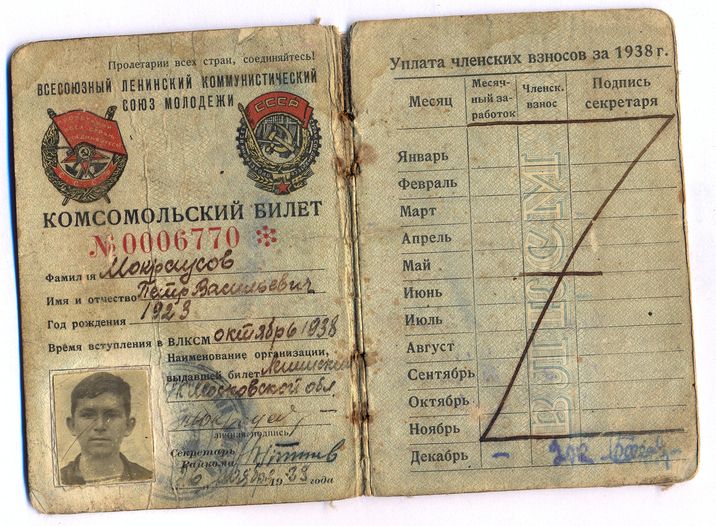 Пролетарии всех стран, соединяйтесь!
ВСЕСОЮЗНЫЙ ЛЕНИНСКИЙ КОММУНИСТИЧЕСКИЙ
СОЮЗ МОЛОДЕЖИ
СССР
КОМСОМОЛЬСКИЙ БИЛЕТ
№ 0006770
Фамилия Мокроусов
Имя и отчество Петр Васильевич
Год рождения 1923
Время вступления в ВЛКСМ октябрь 1938
Наименование организации,
выдавшей билет
Московской обл.
личная подпись
Секретарь
Райкома
1938 года
Уплата членских взносов за 1938 г.
Месяц
Месяч-
ный за-
работок
Членск.
взнос
Подпись
секретаря
Январь
Февраль
Март
Апрель
Май
Июнь
Июль
Август
Сентябрь
Октябрь
Ноябрь
Декабрь –
ВЛКСМ